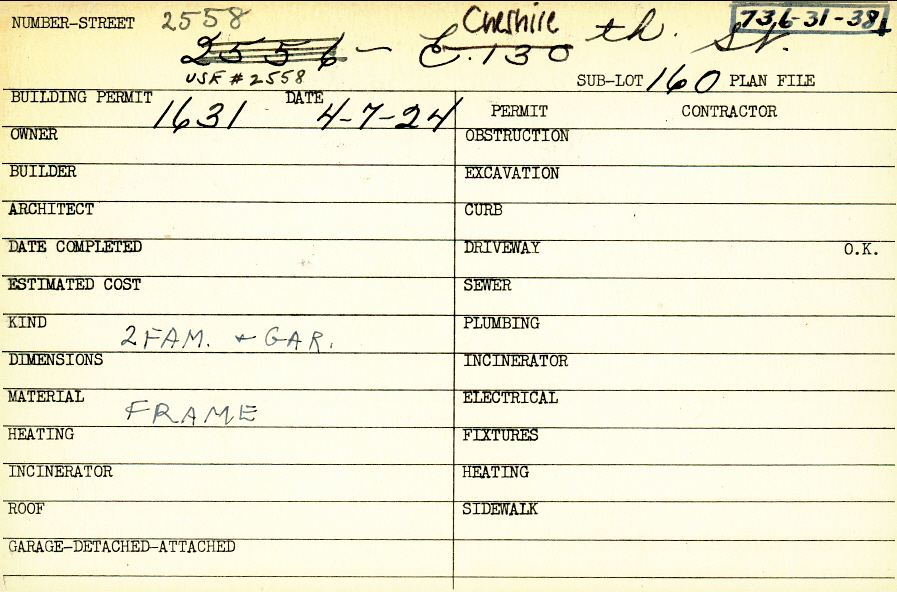 NUMBER-STREET 2558 Cheshire 736-31-38
2556 - E. 130 th. St.
USE # 2558
SUB-LOT 160 PLAN FILE
BUILDING PERMIT 1631 DATE 4-7-24
PERMIT CONTRACTOR
OWNER
OBSTRUCTION
BUILDER
EXCAVATION
ARCHITECT
CURB
DATE COMPLETED
DRIVEWAY O.K.
ESTIMATED COST
SEWER
KIND 2 FAM. + GAR.
PLUMBING
DIMENSIONS
INCINERATOR
MATERIAL FRAME
ELECTRICAL
HEATING
FIXTURES
INCINERATOR
HEATING
ROOF
SIDEWALK
GARAGE-DETACHED-ATTACHED